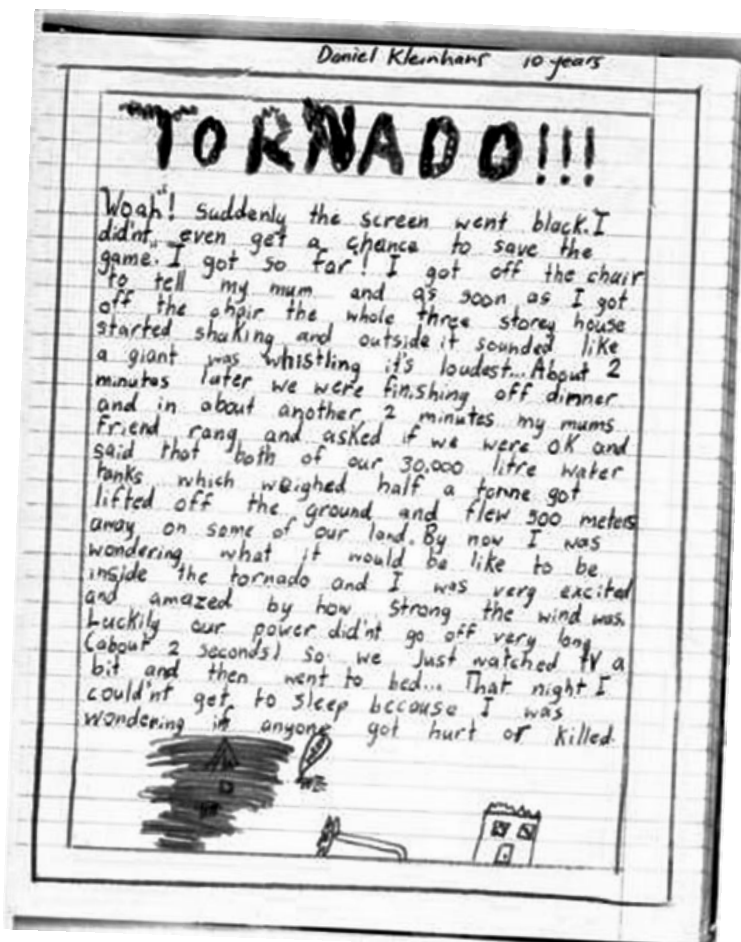 Daniel Kleinhans 10 years
TORNADO!!!
"Woah"! Suddenly the screen went black. I
did'nt even get a chance to save the
game. "I got so far"! I got off the chair
to tell my mum and as soon as I got
off the chair the whole three storey house
started shaking and outside it sounded like
a giant was whistling it's loudest... About 2
minutes later we were finishing off dinner
and in about another 2 minutes my mums
friend rang and asked if we were OK and
said that both of our 30,000 litre water
tanks which weighed half a tonne got
lifted off the ground and flew 500 meters
away on some of our land. By now I was
wondering what it would be like to be
inside the tornado and I was very excited
and amazed by how strong the wind was.
Luckily our power did'nt go off very long
(about 2 seconds) so we Just watched TV a
bit and then went to bed... That night I
could'nt get to sleep because I was
wondering if anyone got hurt or killed.